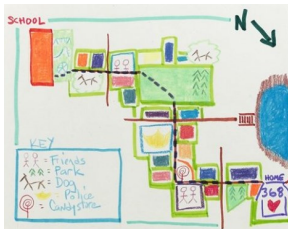 SCHOOL
N
KEY
= Friends
= Park
= Dog
= Police
= Candy store
HOME
368